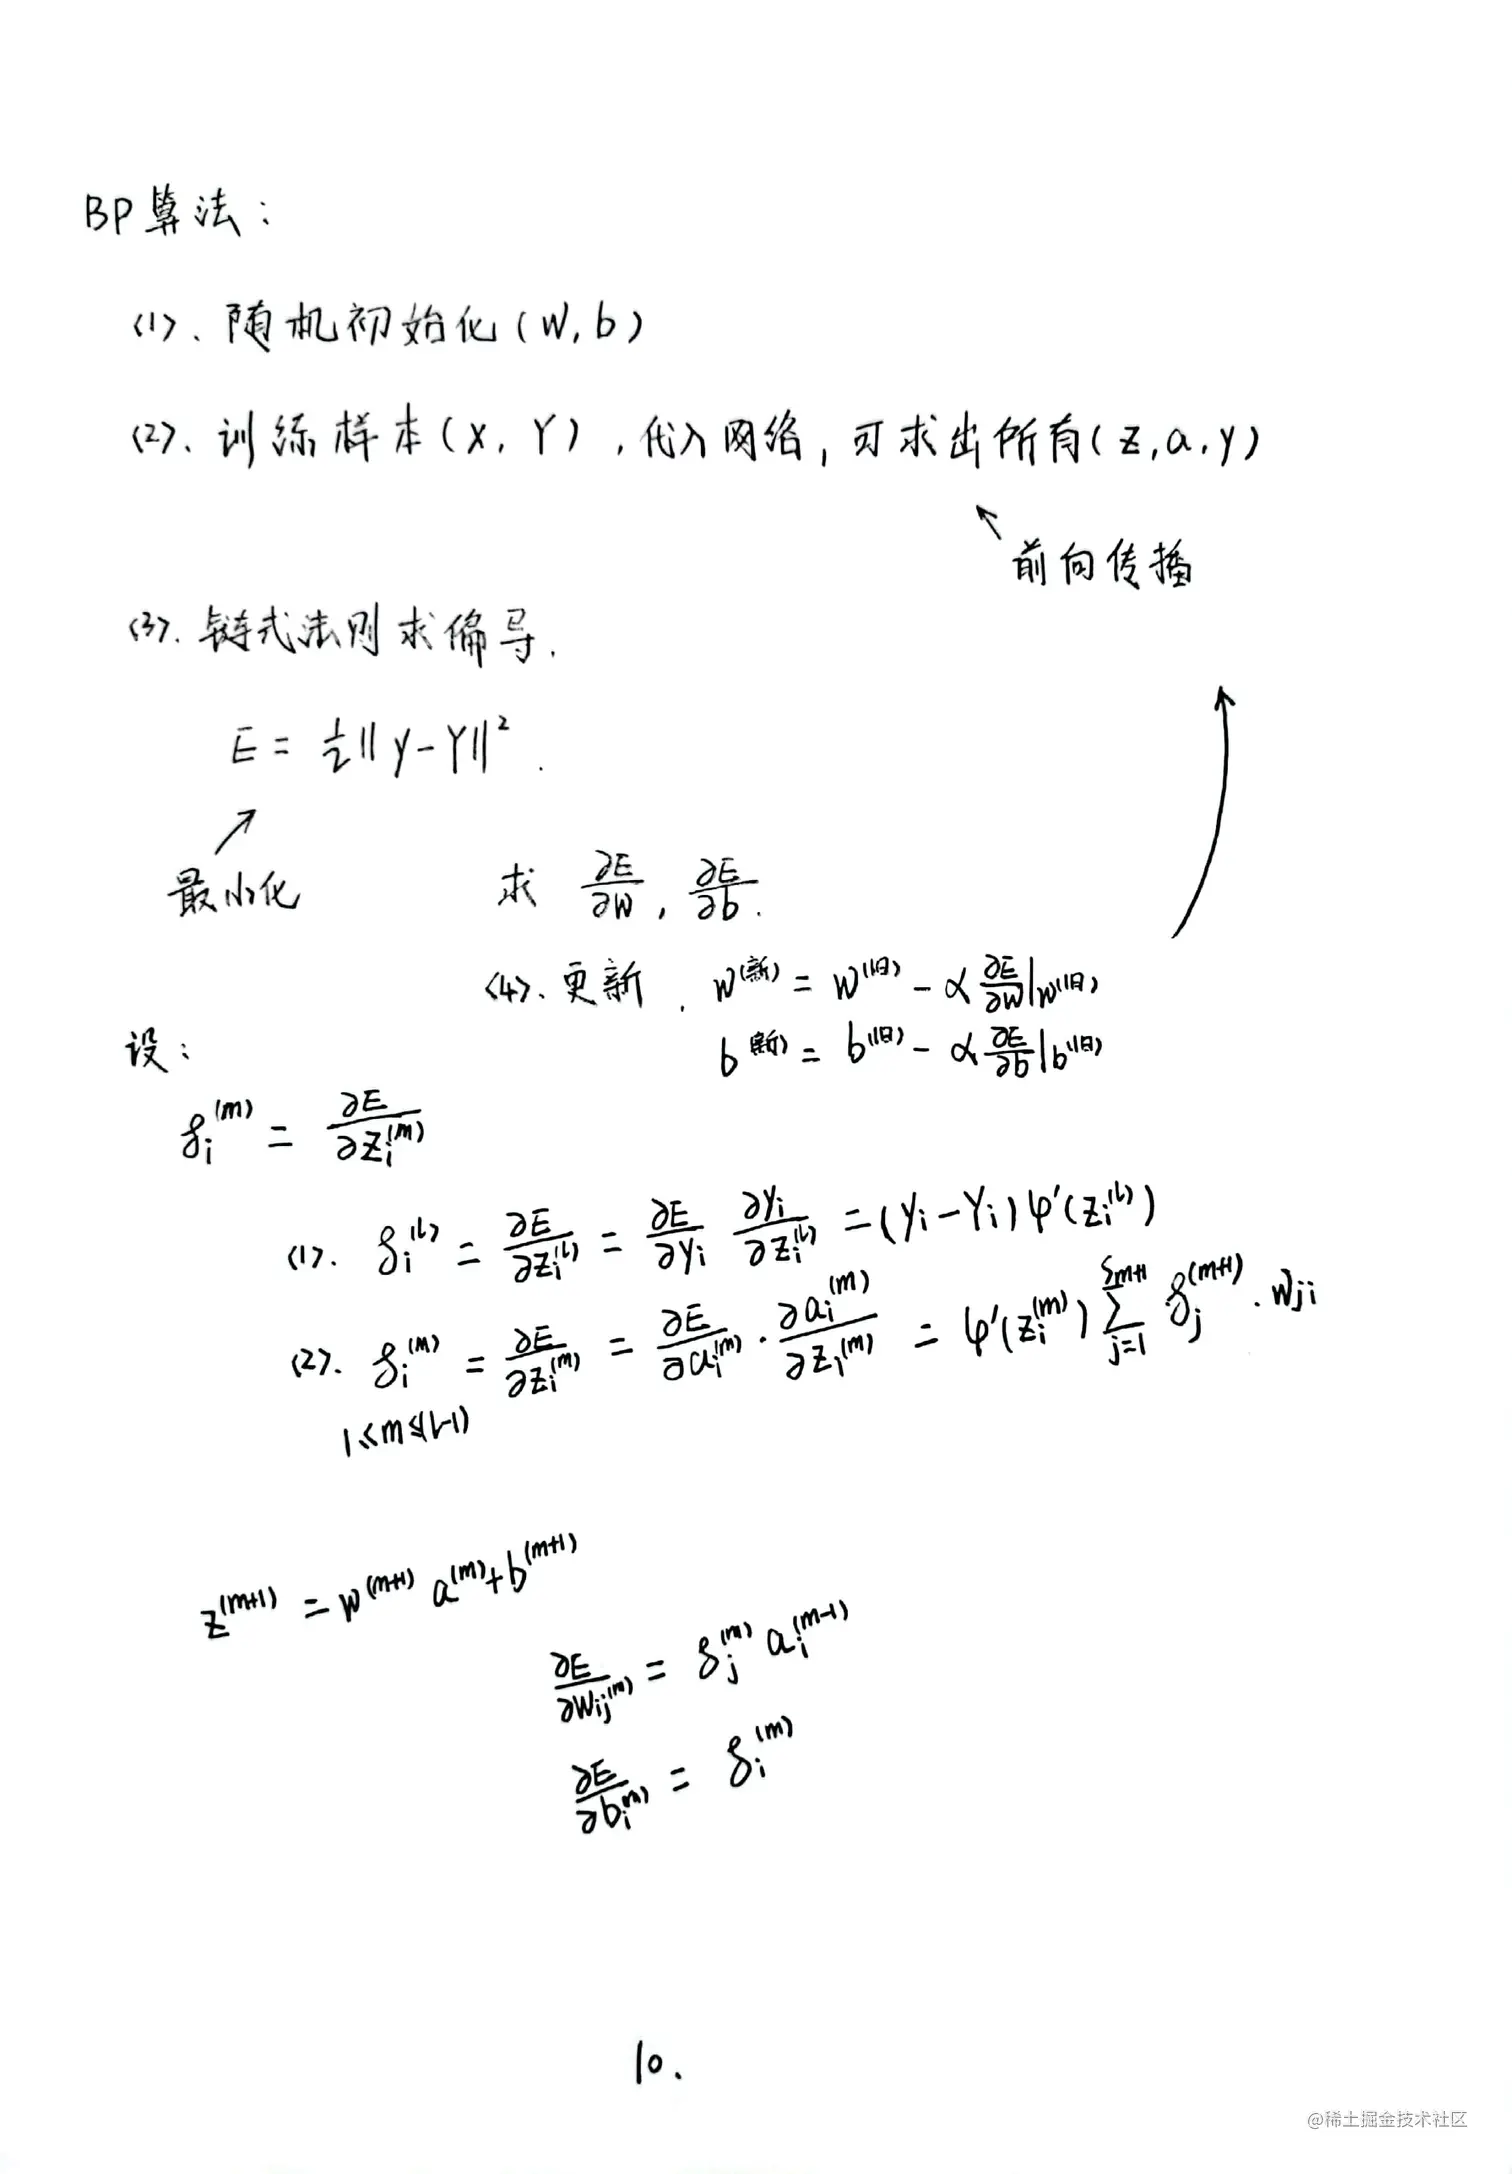 BP算法：
<1>、随机初始化(W, b)
<2>、训练样本(X, Y)，代入网络，可求出所有(z, a, y)
前向传播
<3>、链式法则求偏导.
E = ½‖y-Y‖².
最小化
求 ∂E/∂w, ∂E/∂b.
<4>、更新. w^(新) = w^(旧) - α ∂E/∂w|w^(旧)
b^(新) = b^(旧) - α ∂E/∂b|b^(旧)
设：
δ_i^(m) = ∂E/∂z_i^(m)
<1>. δ_i^(l) = ∂E/∂z_i^(l) = ∂E/∂y_i ∂y_i/∂z_i^(l) = (y_i - Y_i) φ'(z_i^(l))
<2>. δ_i^(m) = ∂E/∂z_i^(m) = ∂E/∂a_i^(m) · ∂a_i^(m)/∂z_i^(m) = φ'(z_i^(m)) ∑_{j=1}^{S_{m+1}} δ_j^(m+1) · W_ji
1≤m≤(l-1)
z^(m+1) = w^(m+1) a^(m) + b^(m+1)
∂E/∂W_ij^(m) = δ_j^(m) a_i^(m-1)
∂E/∂b_i^(m) = δ_i^(m)
10.
@稀土掘金技术社区